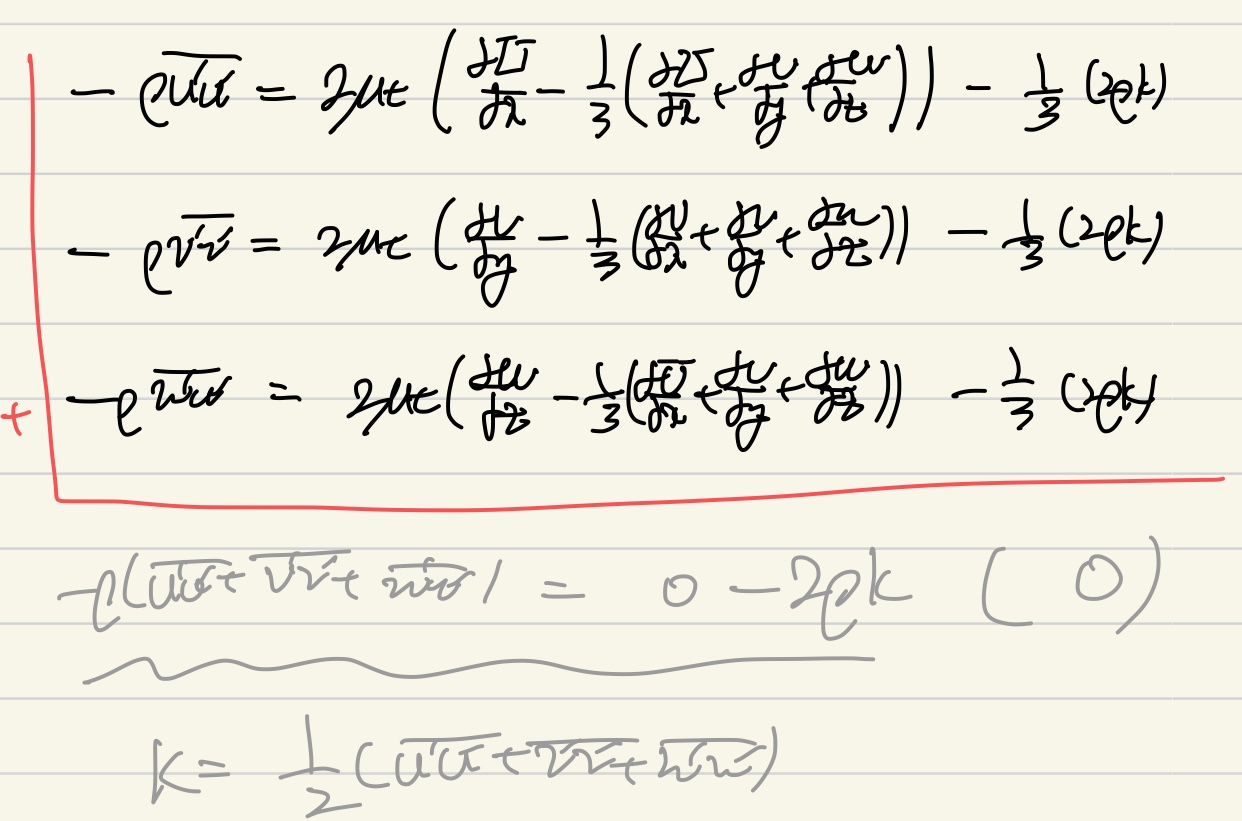 − ρ\overline{u'u'} = 2μt (∂U/∂x − 1/3 (∂U/∂x + ∂v/∂y + ∂w/∂z)) − 1/3 (2ρk)
− ρ\overline{v'v'} = 2μt (∂v/∂y − 1/3 (∂U/∂x + ∂v/∂y + ∂w/∂z)) − 1/3 (2ρk)
+ −ρ\overline{w'w'} = 2μt (∂w/∂z − 1/3 (∂U/∂x + ∂v/∂y + ∂w/∂z)) − 1/3 (2ρk)
−ρ(\overline{u'u'} + \overline{v'v'} + \overline{w'w'}) = 0 − 2ρk ( 0 )
k = 1/2 (\overline{u'u'} + \overline{v'v'} + \overline{w'w'})